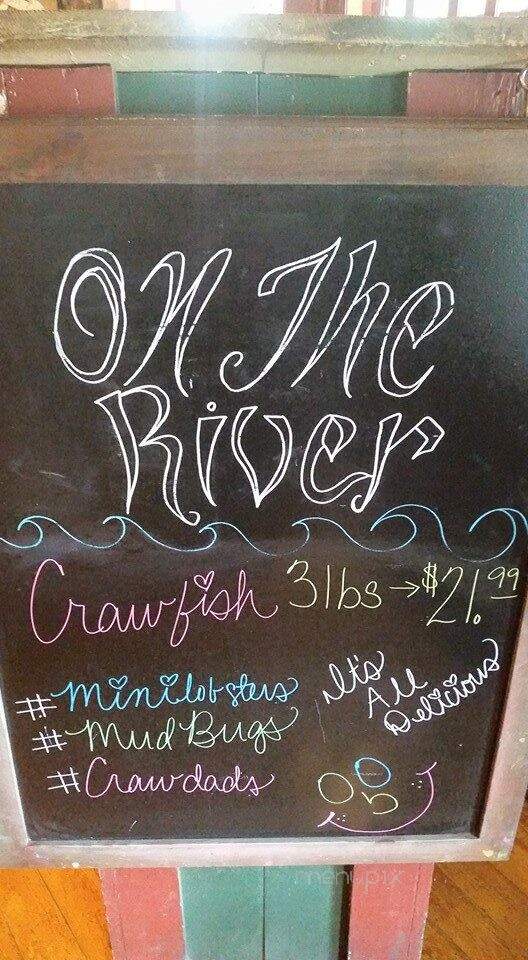 On The
River
Crawfish 3lbs → $21.99
#minilobsters
#MudBugs
#Crawdads
It's
All
Delicious
menupix